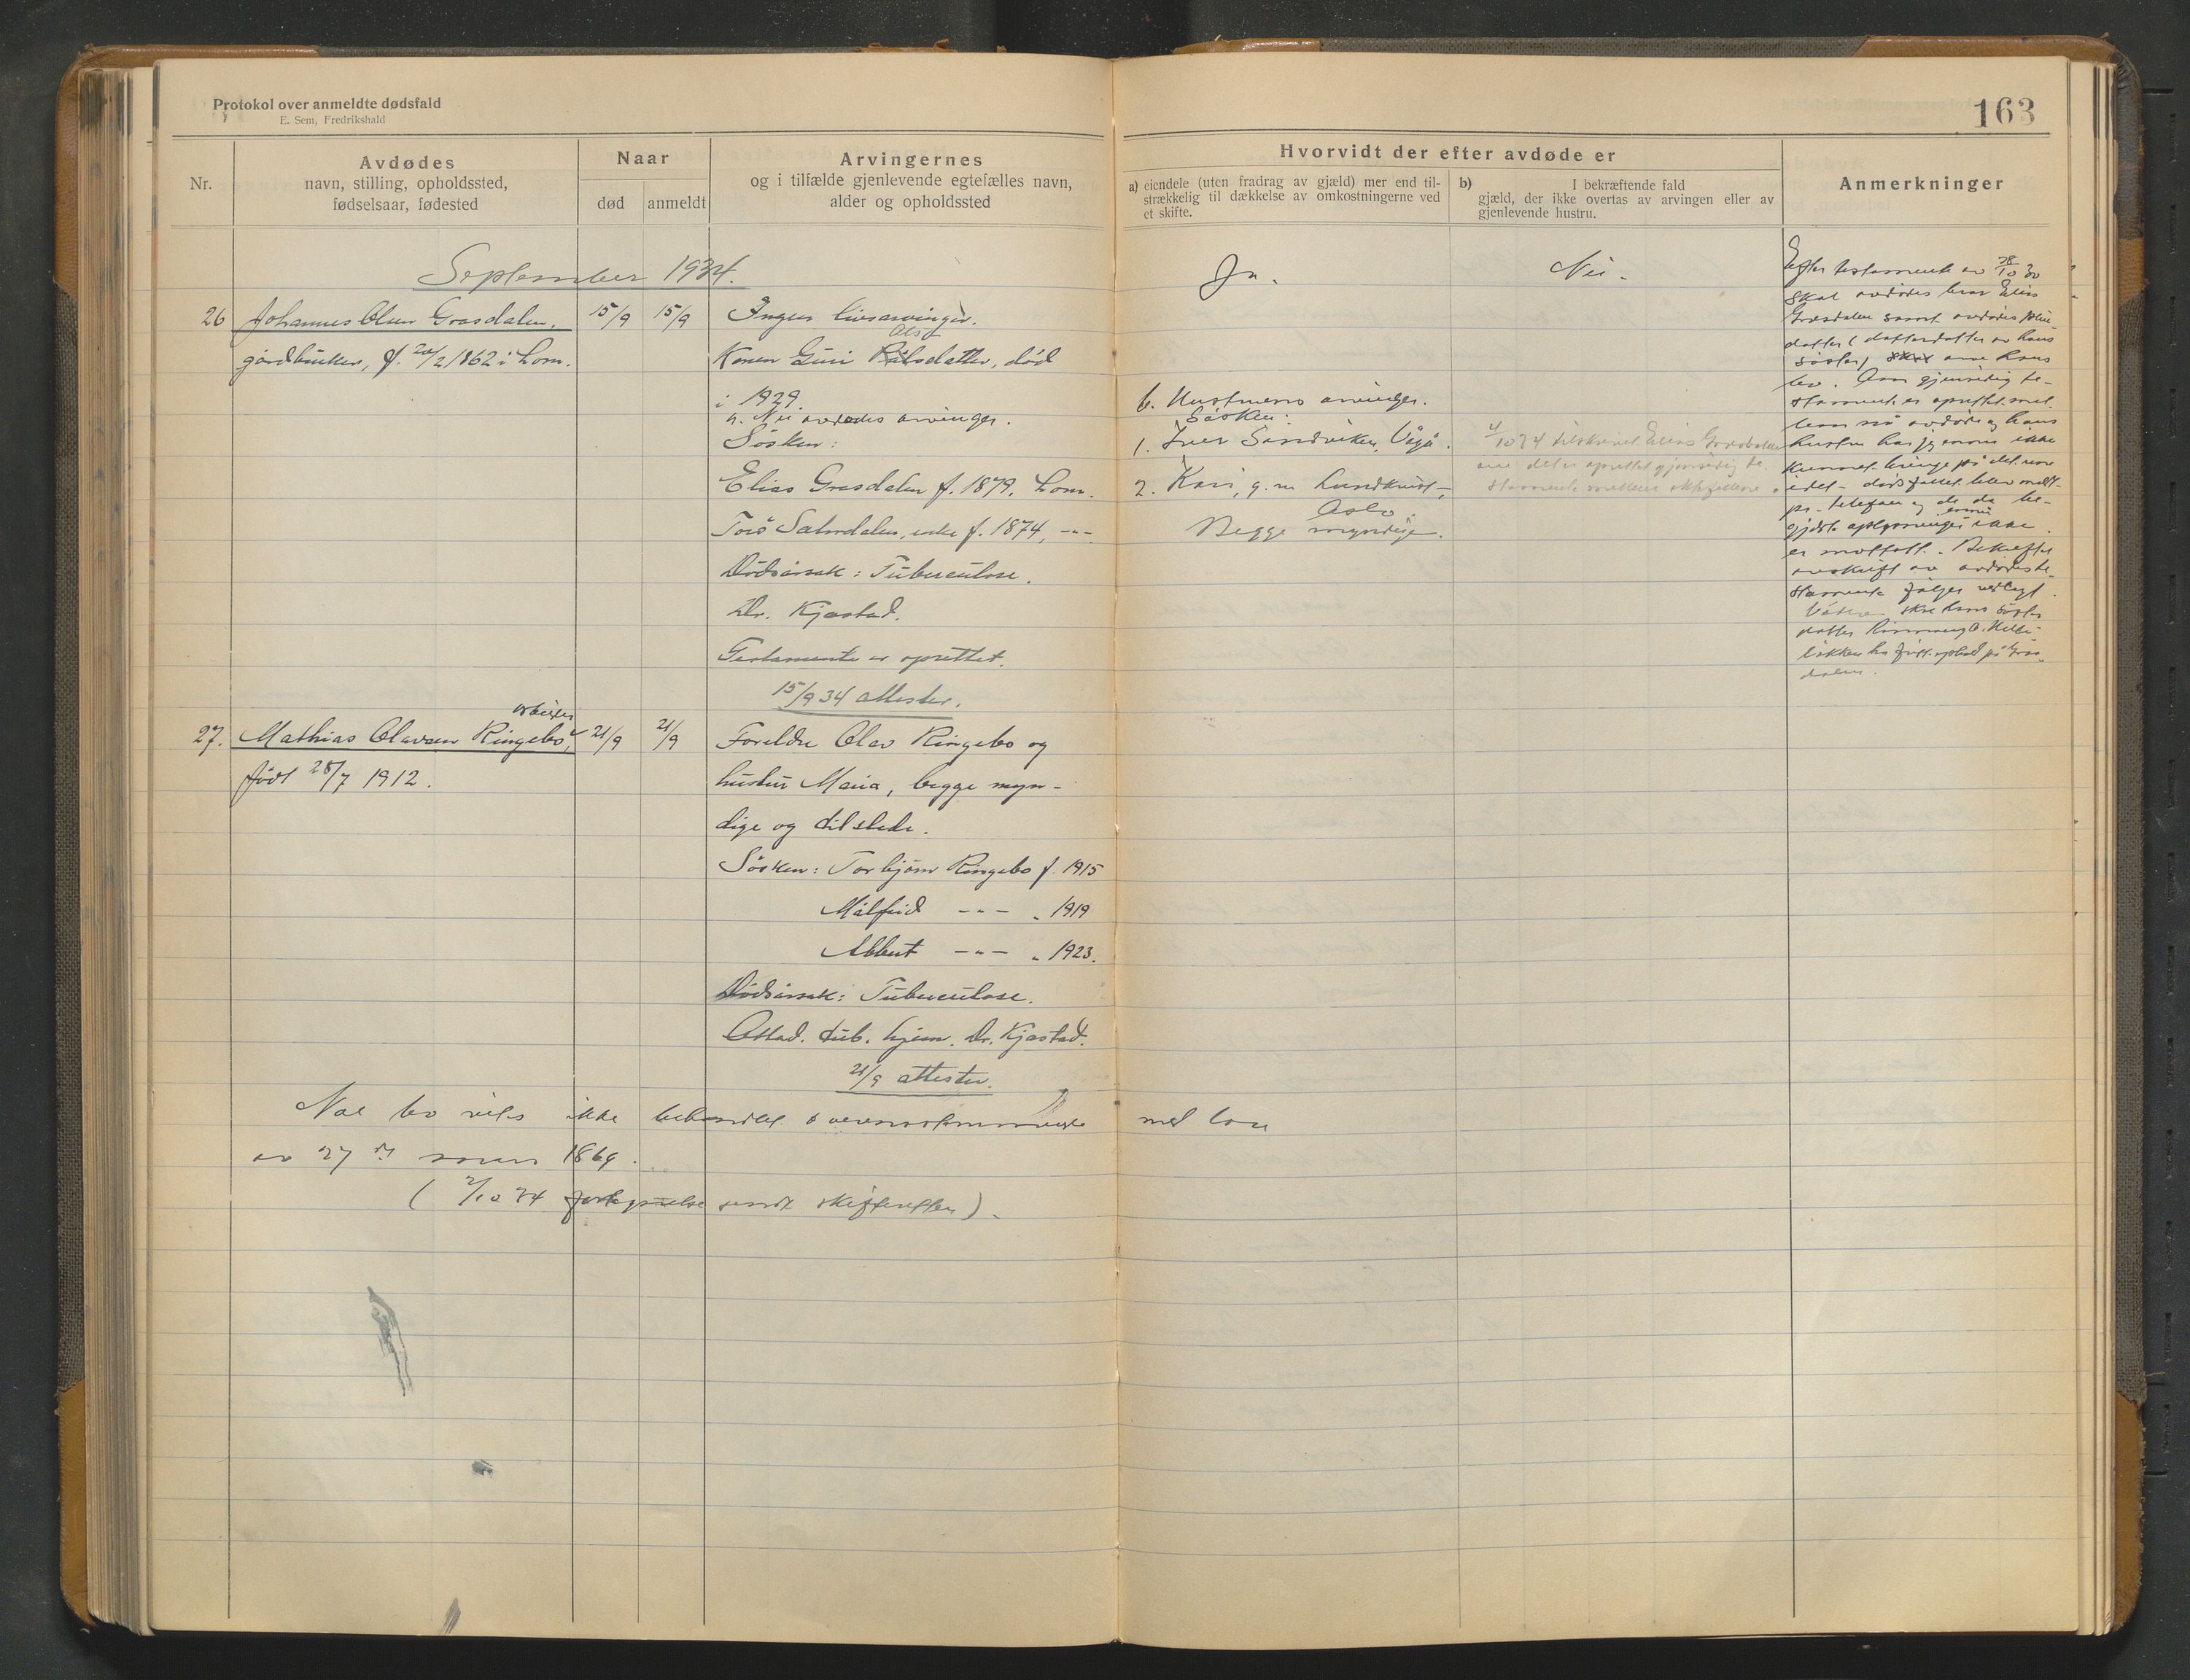 Protokol over anmeldte dødsfald
E. Sem, Fredrikshald
163
Nr.
Avdødes
navn, stilling, opholdssted,
fødselsaar, fødested
Naar
død
anmeldt
Arvingernes
og i tilfælde gjenlevende egtefælles navn,
alder og opholdssted
Hvorvidt der efter avdøde er
a) eiendele (uten fradrag av gjæld) mer end til-
strækkelig til dækkelse av omkostningerne ved
et skifte.
b) I bekræftende fald
gjæld, der ikke overtas av arvingen eller av
gjenlevende hustru.
Anmerkninger
September 1934.
26 Johannes Olsen Grasdalen, 15/9 15/9
gårdbruker, f. 20/2 1862 i Lom.
Ingen livsarvinger.
Ols
Konen Guri datter, død
i 1929.
a. Nu avdødes arvinger.
Søsken:
Elias Grasdalen f. 1879, Lom.
Torø Sulmdalen, enke f. 1874, -"-
Dødsårsak: Tuberculose.
Dr. Kjøstad.
Testamente er oprettet.
15/9 34 attester.
Ja.
b. Hustruens arvinger.
Søsken:
1. Iver Sandviken, Vågå.
2. Kari, g.m. Lundkvist,
Oslo.
Begge myndige.
Nei.
4/10 34 tilskrevet Elias Grasdalen
om det er oprettet gjensidig te-
stamente mellem ektefellene.
Efter testamente av 28/10 30
skal avdødes bror Elias
Grasdalen samt avdødes pleie-
datter (datterdatter av hans
søster) arve hans
bo. Om gjensidig te-
stamente er oprettet mel-
lem nu avdøde og hans
hustru har jeg ennu ikke
kunnet bringe på det rene
idet dødsfallet blev meldt
pr. telefon og de da be-
gjærte oplysninger ennu ikke
er mottatt. Bekreftet
avskrift av avdødes te-
stamente følger vedlagt.
Videre skal hans søster
datter
ha fritt ophold på Gras-
dalen.
arbeider
27. Mathias Olavsen Ringebo, 21/9 21/9
født 28/7 1912.
Foreldre Olav Ringebo og
hustru Maria, begge myn-
dige og tilstede.
Søsken: Torbjørn Ringebo f. 1915
Målfrid -"- " 1919
Albert -"- " 1923.
Dødsårsak: Tuberculose.
Ottad. tub. hjem. Dr. Kjøstad.
21/9 attester.
bo ikke behandlet i overensstemmelse med lov
av 27 1869.
(2/10 34 fortegnelse sendt skifteretten).